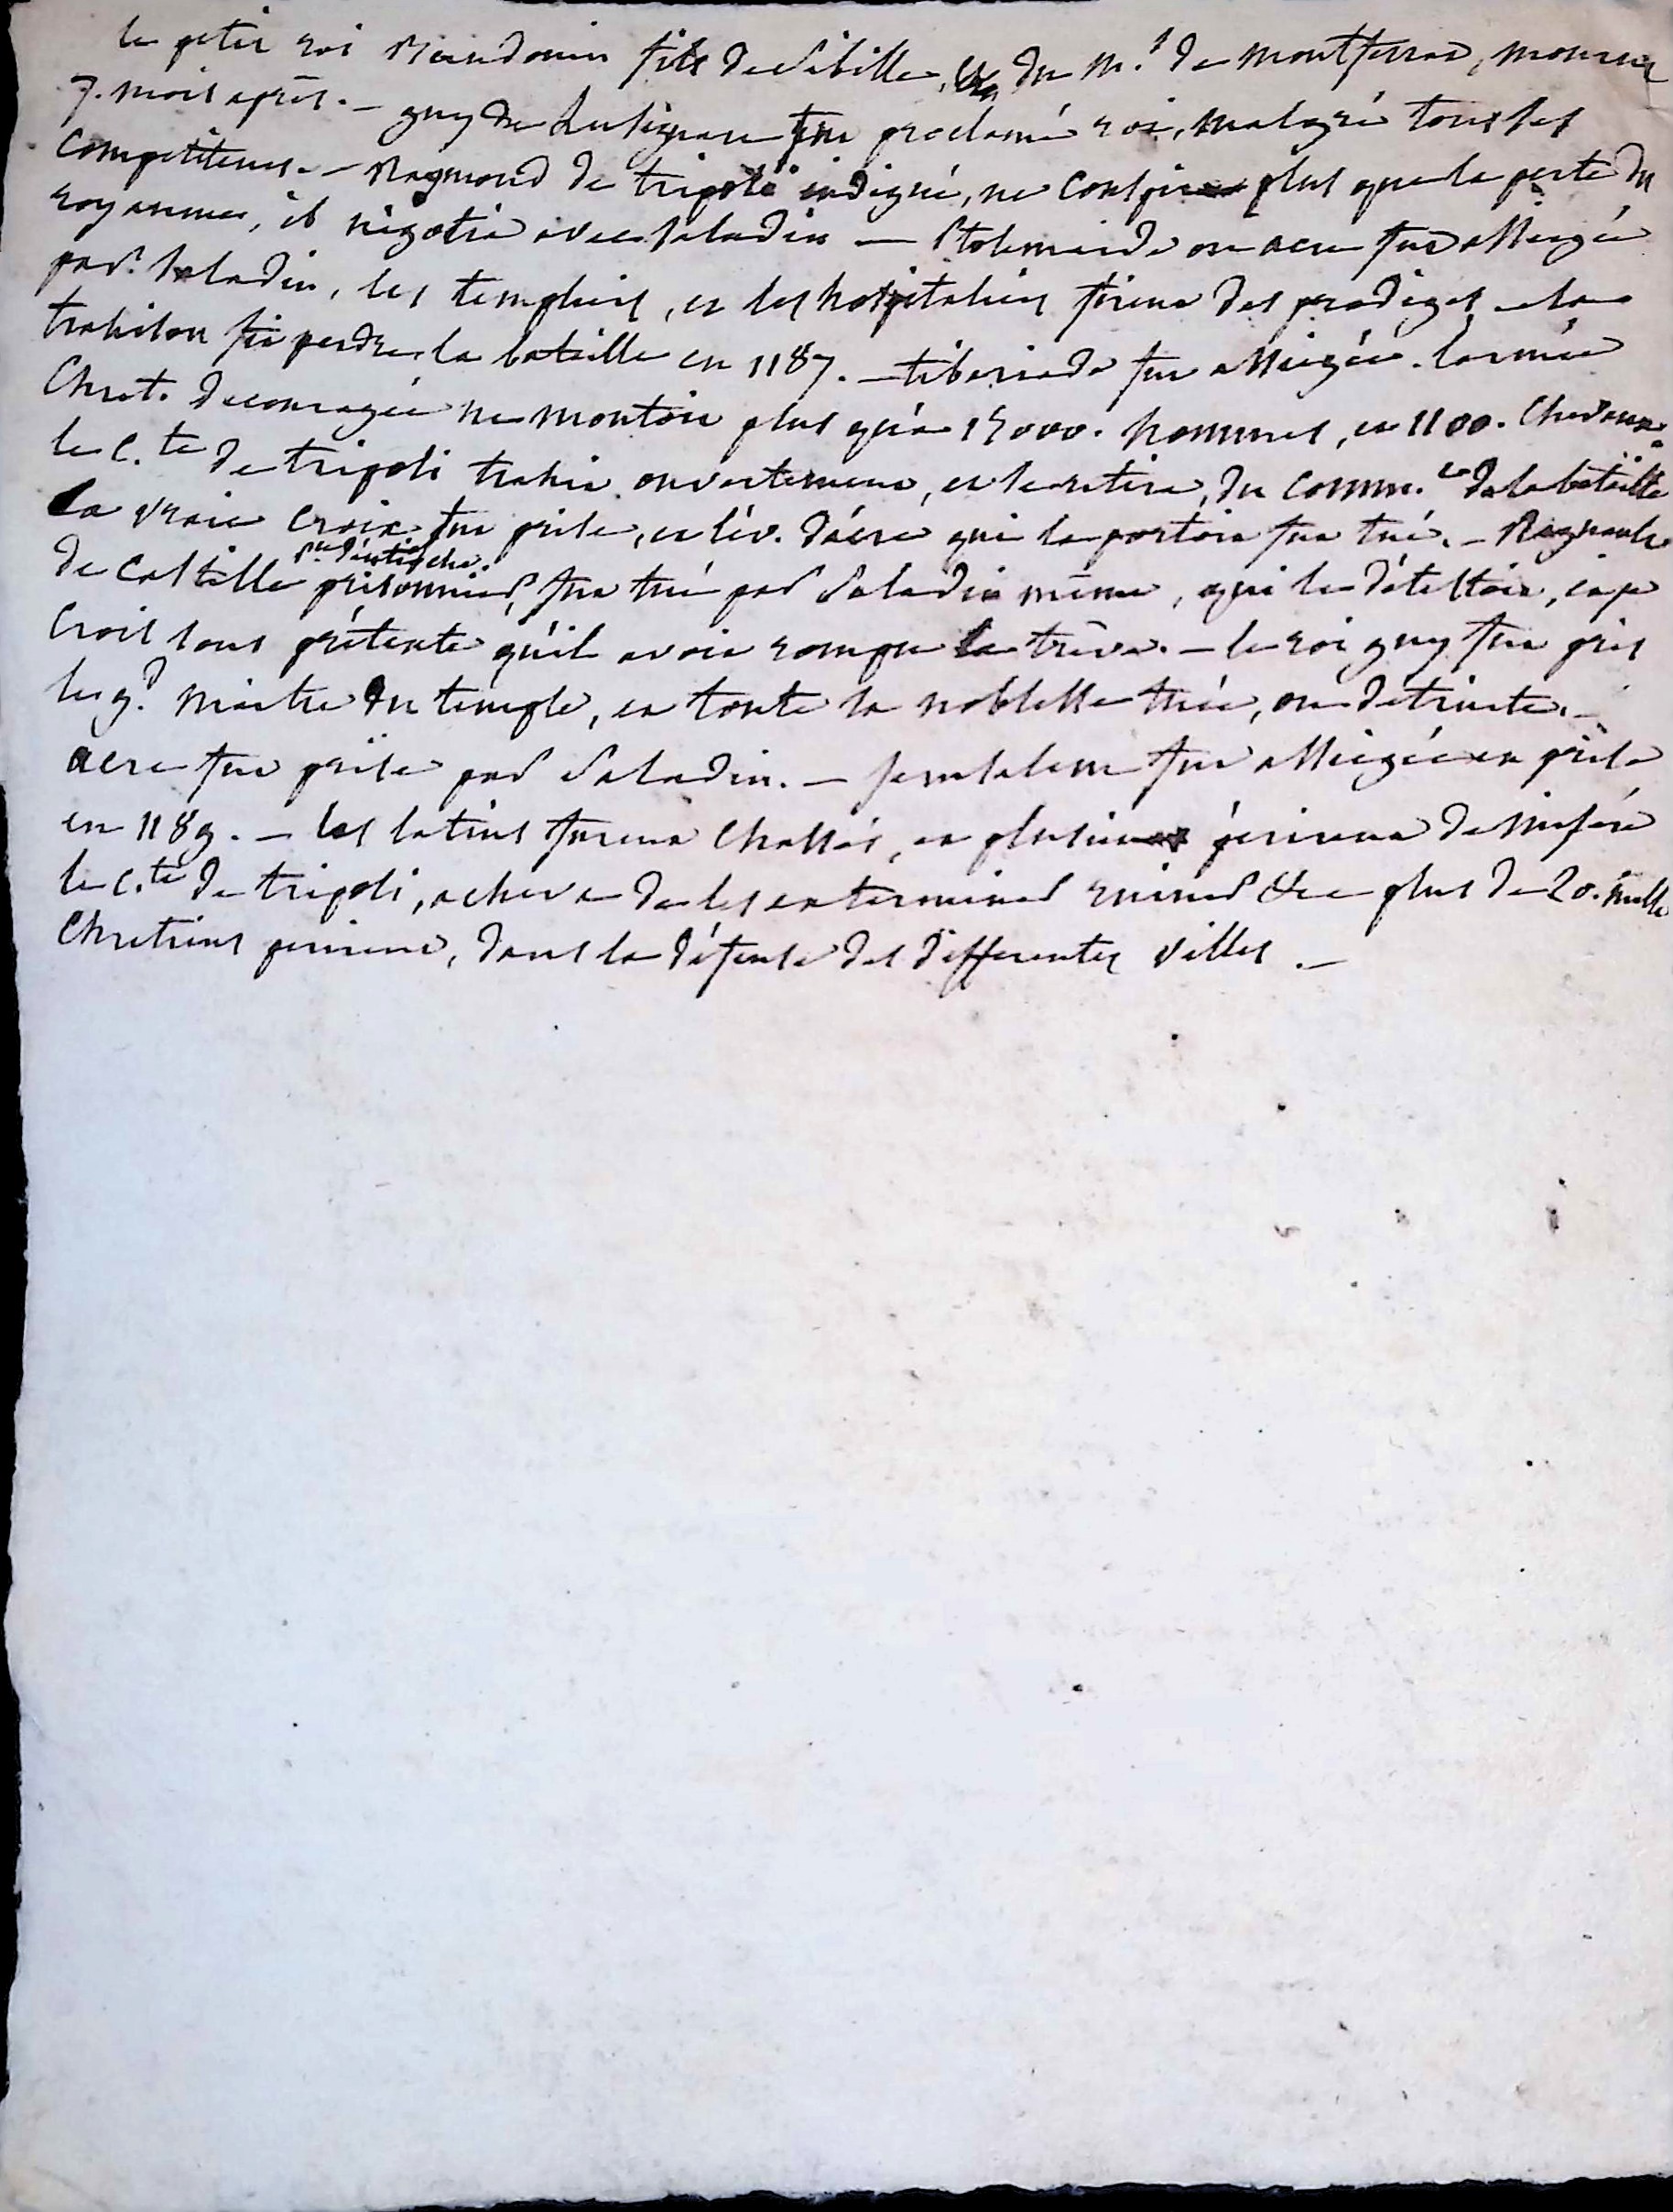 le petit roi Baudouin fils de Sibille, et du m.s de montferrat, mourut
7. mois après. – guy de Lusignan fut proclamé roi, malgré tous ses
Competiteurs. – Raymond de tripoli indigné, ne conspira plus que la perte du
royaume, il négotia avec Saladin — Ptolemaïde ou acre fut assiegée
par Saladin, les templiers, et les hospitaliers firent des prodiges – la
trahison fit perdre la bataille en 1187. – tiberiade fut assiegée. l'armée
Chret. decouragée ne montoit plus qu'à 15000. hommes, et 1100. Chevaux.
le C.te de tripoli trahit ouvertement, et se retira, du comm.t de la bataille
La vraie Croix fut prise, et l'év. d'acre qui la portoit fut tué. – Raynault
de Castille p.ce d'antioche. prisonnier, fut tué par Saladin même, qui le détestoit, et je
Crois sous prétexte qu'il avoit rompu la trêve. – le roi guy fut pris
le g.d maitre du temple, et toute la noblesse tuée, ou detruite. –
acre fut prise par Saladin. – Jerusalem fut assiegée et prise
en 1189. – les latins furent Chassés, et plusieurs périrent de misére
le C.te de tripoli, acheva de les exterminer ruiner &c plus de 20. mille
Chretiens perirent, dans la défense des differentes villes. –